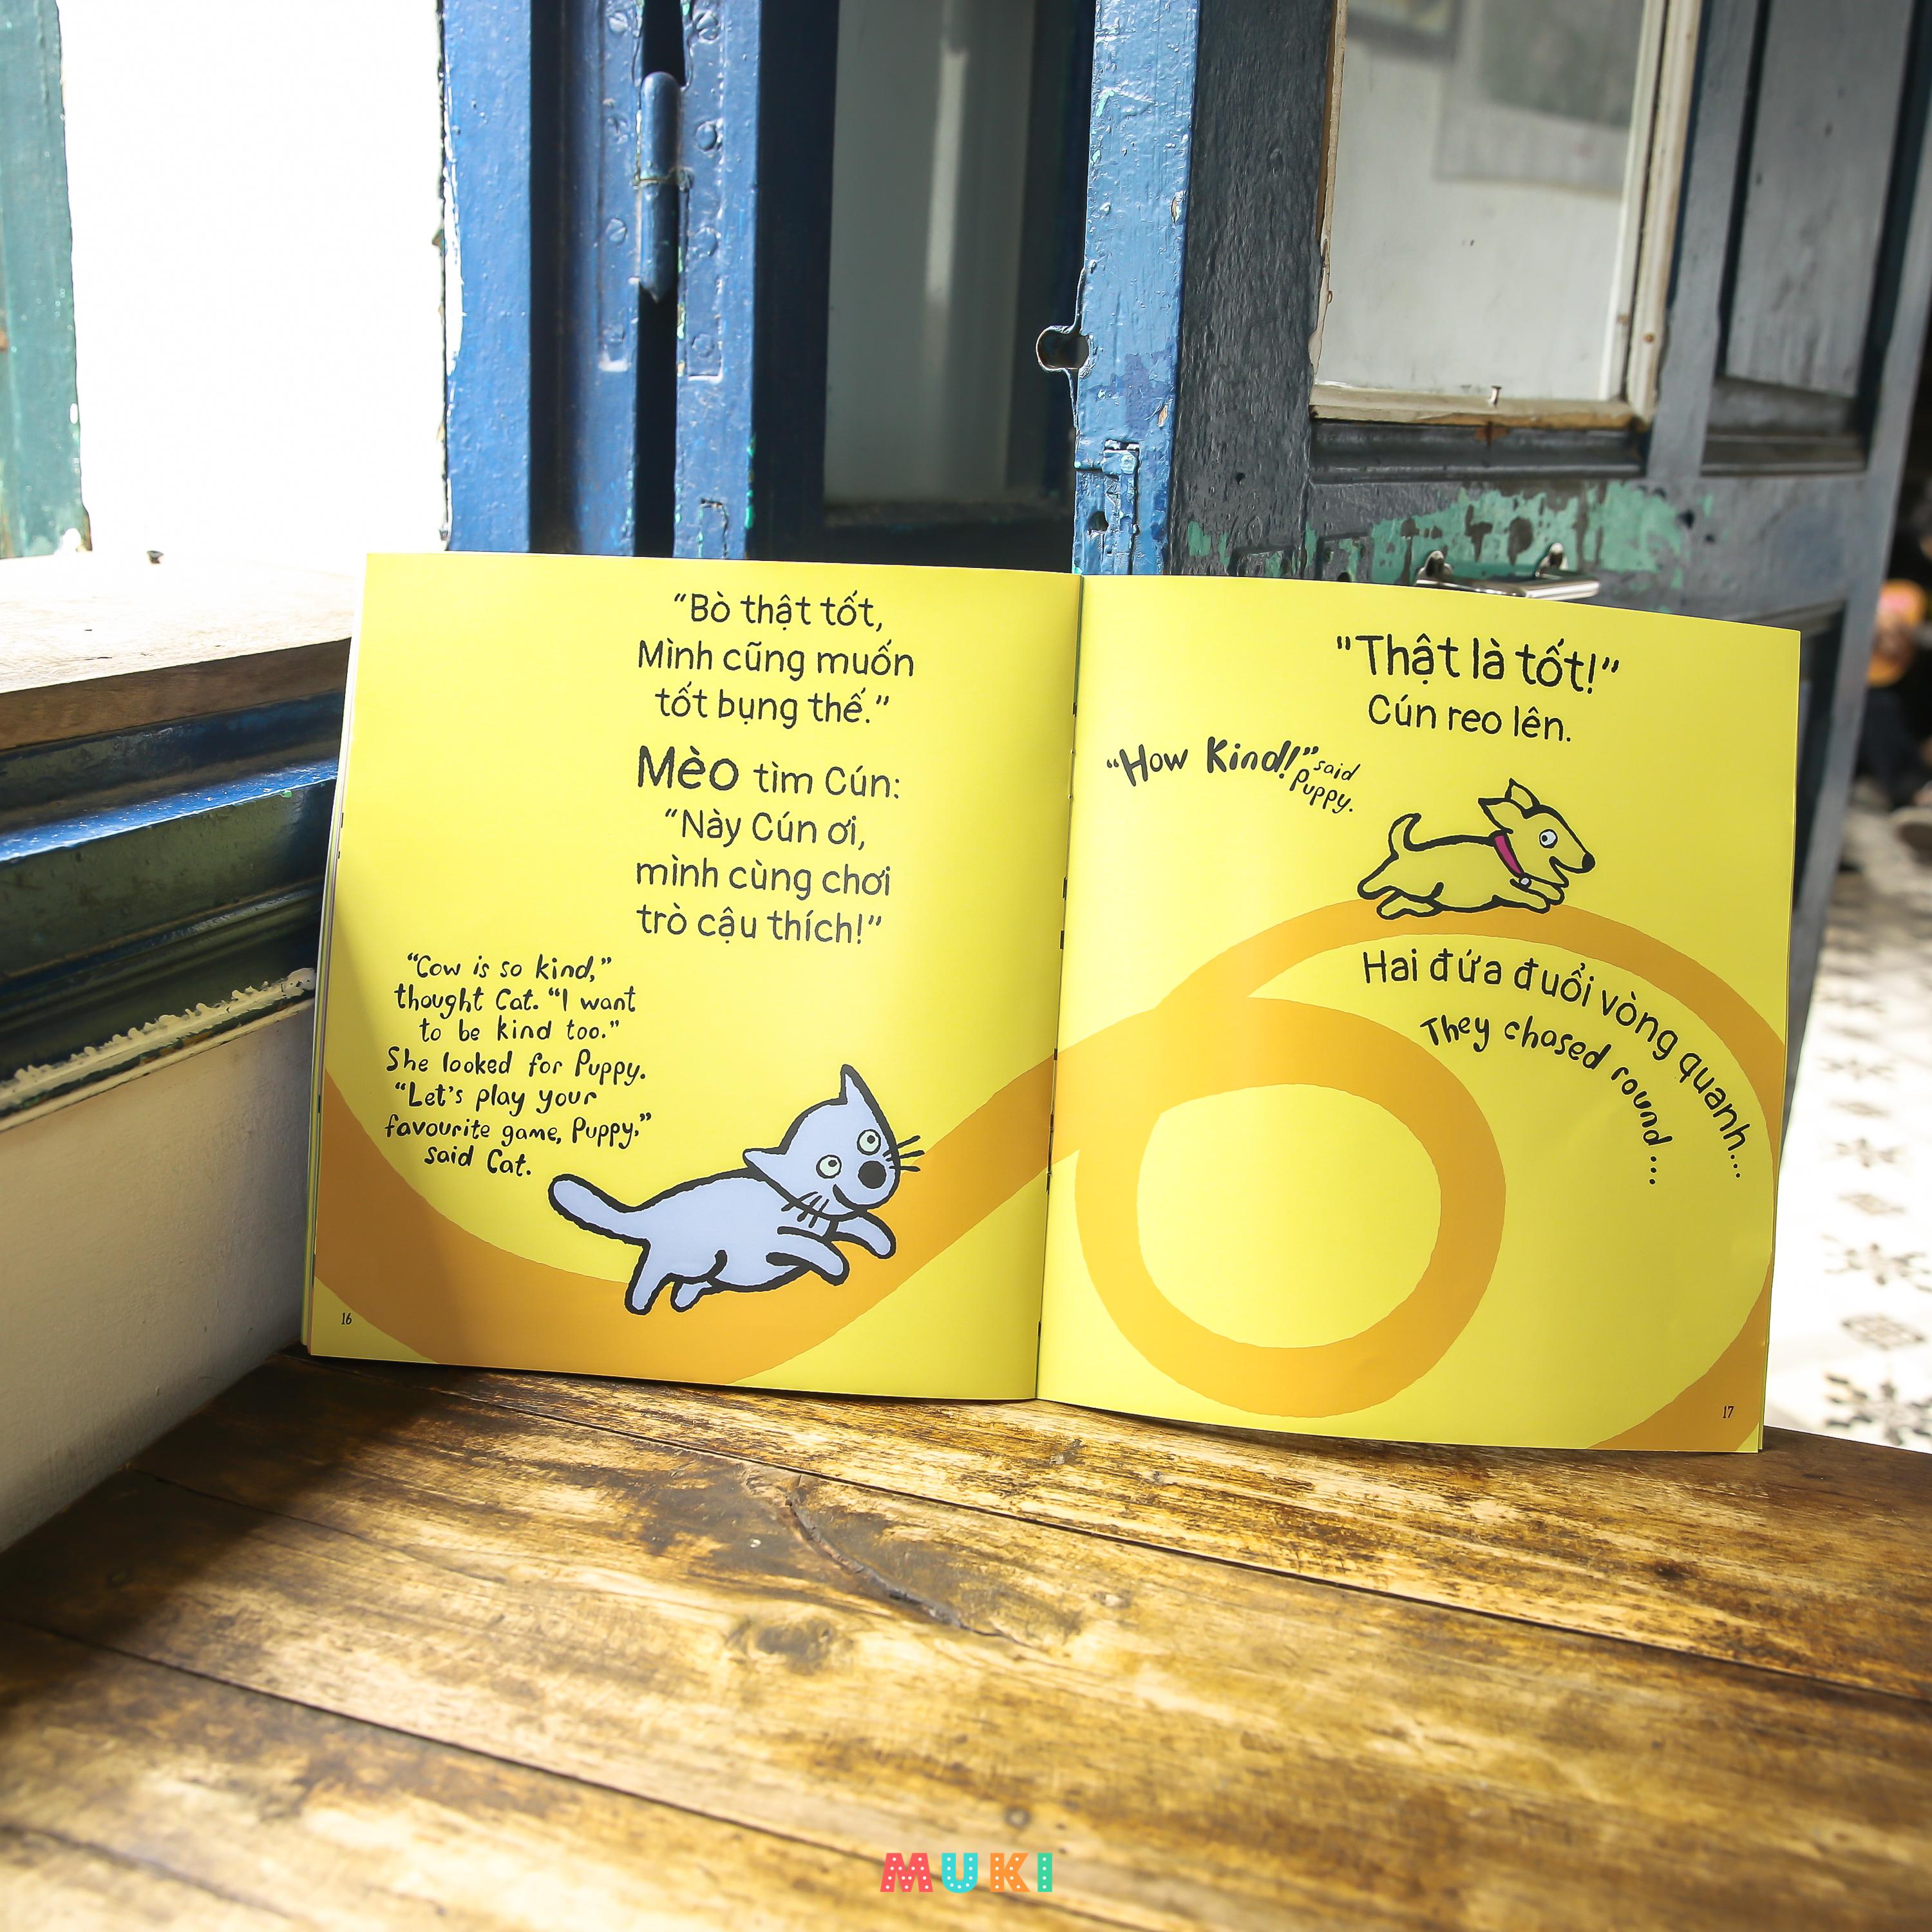 “Bò thật tốt,
Mình cũng muốn
tốt bụng thế.”
Mèo tìm Cún:
“Này Cún ơi,
mình cùng chơi
trò cậu thích!”
“Cow is so kind,”
thought Cat. “I want
to be kind too.”
She looked for Puppy.
“Let's play your
favourite game, Puppy,”
said Cat.
16
"Thật là tốt!”
Cún reo lên.
“How Kind!” said
Puppy.
Hai đứa đuổi vòng quanh...
They chased round...
17
MUKI